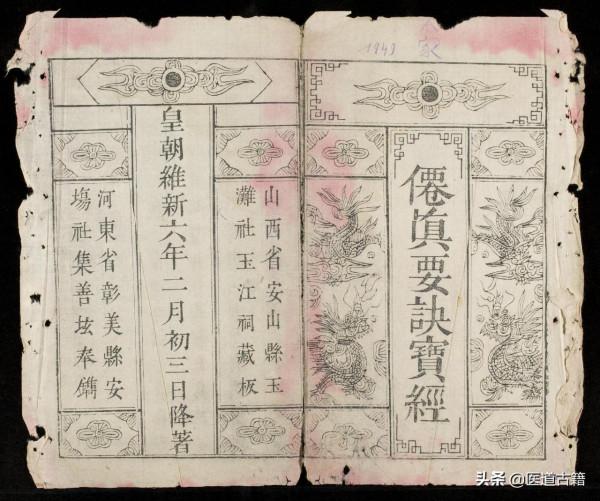 僊眞要訣寶經
山西省安山縣玉
灘社玉江祠藏板
皇朝維新六年二月初三日降著
河東省彰美縣安
塲社集善坛奉鐫
头条 @医道古籍